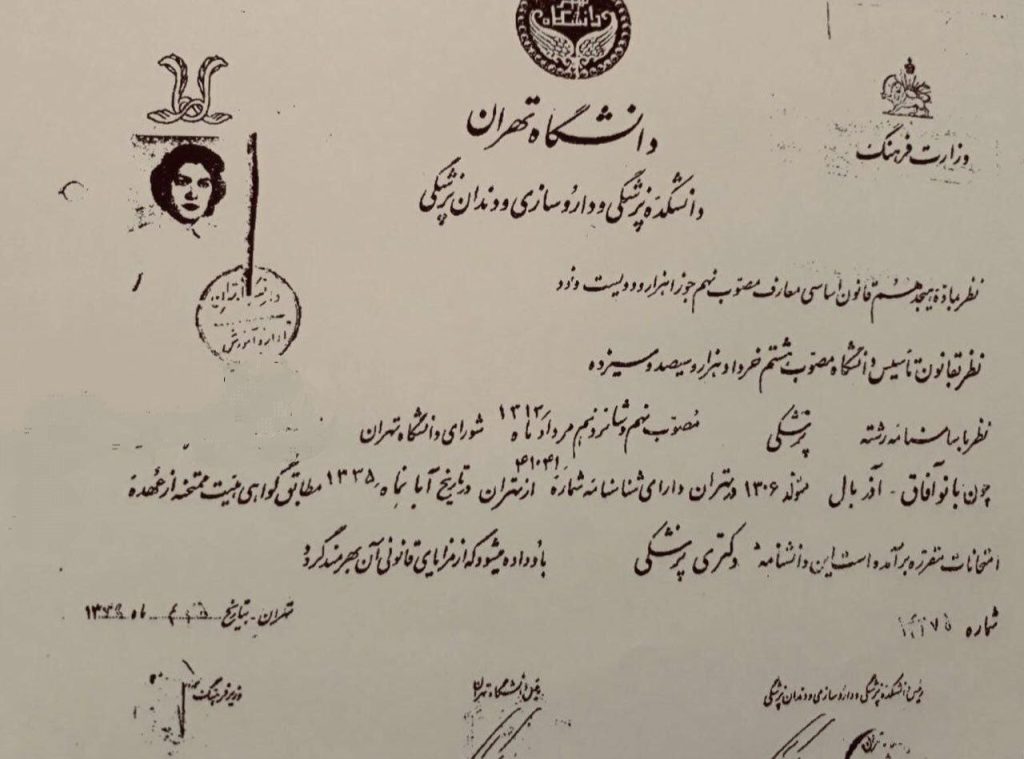 دانشگاه تهران
وزارت فرهنگ
دانشکده پزشکی و داروسازی و دندان پزشکی
نظر بماده هیجدهم قانون اساسی معارف مصوب نهم جوزا هزار و دویست و نود
نظر بقانون تأسیس دانشگاه مصوب هشتم خرداد هزار و سیصد و سیزده
نظر باساسنامه رشته پزشکی مصوب نهم و شانزدهم مرداد ماه ۱۳۱۳ شورای دانشگاه تهران
چون بانو آفاق - آذر بال متولد ۱۳۰۶ در تهران دارای شناسنامه شماره ۴۱۰۴۱ از تهران در تاریخ آبانماه ۱۳۳۵ مطابق گواهی هیئت ممتحنه از عهده
امتحانات مقرره برآمده است این دانشنامه دکتری پزشکی باو داده میشود که از مزایای قانونی آن بهره‌مند گردد
شماره
تهران - بتاریخ ماه
رئیس دانشکده پزشکی و داروسازی و دندان پزشکی
رئیس دانشگاه تهران
وزیر فرهنگ
اداره آموزش